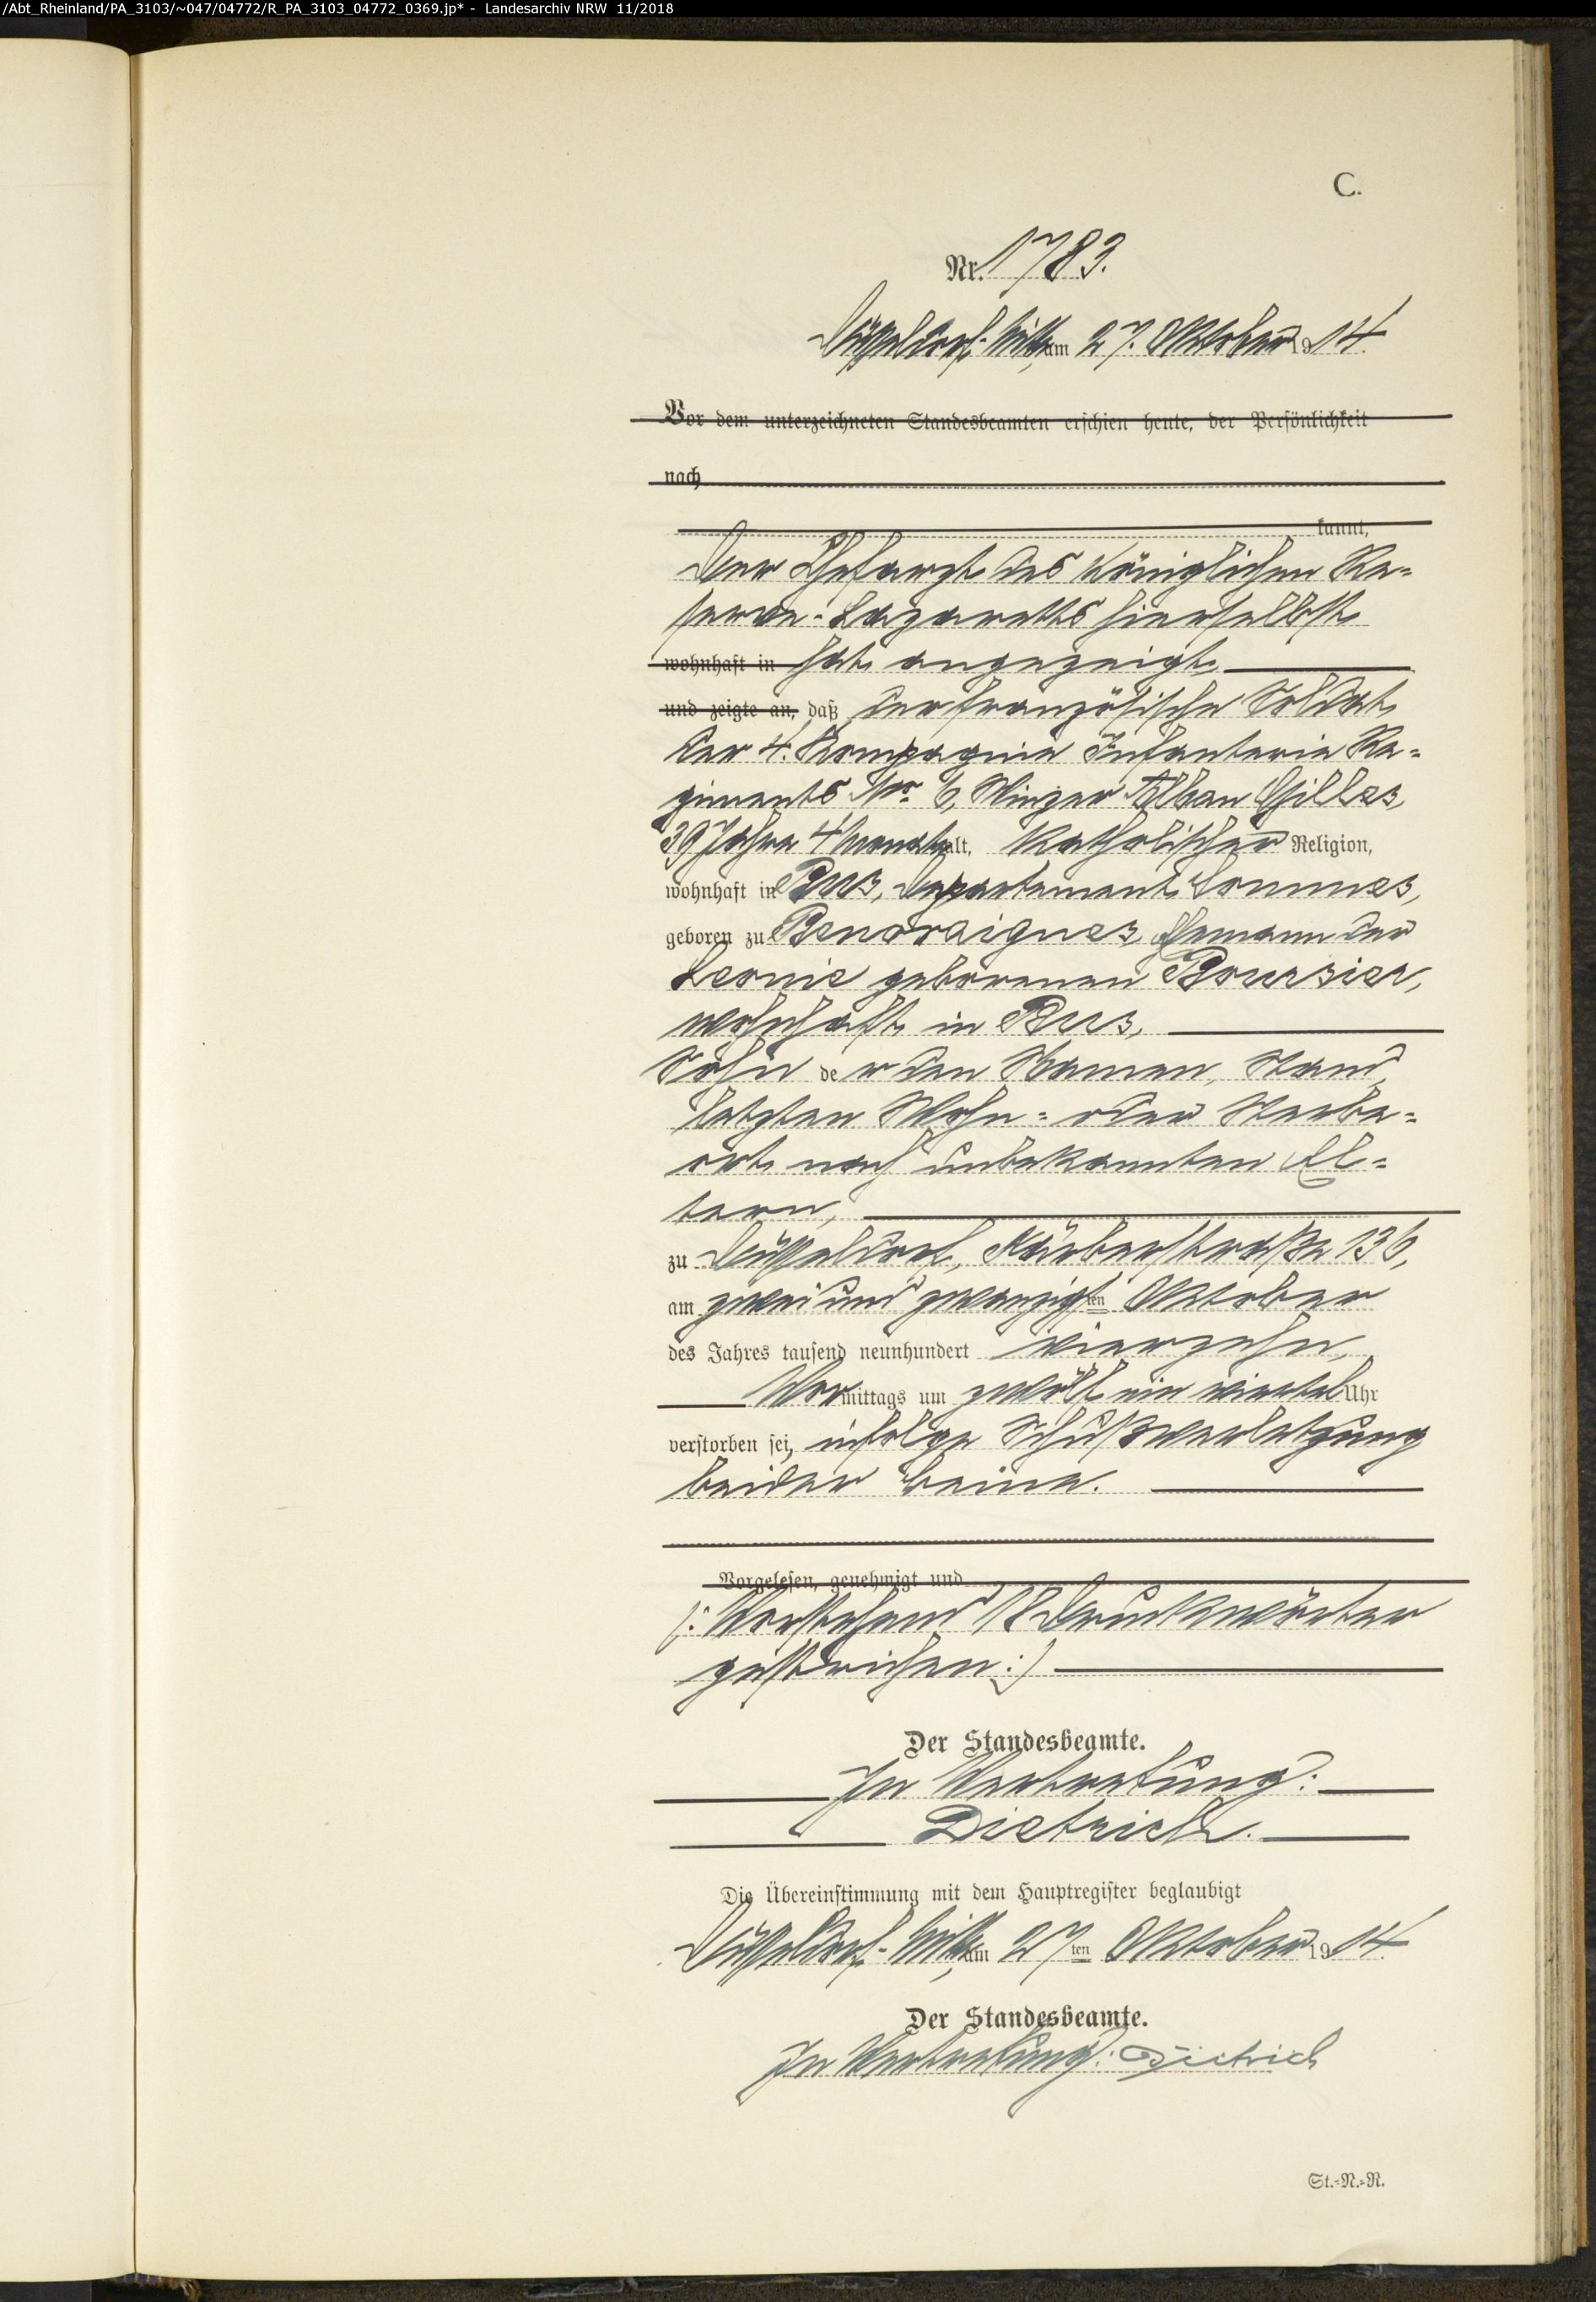 /Abt_Rheinland/PA_3103/~047/04772/R_PA_3103_04772_0369.jp* - Landesarchiv NRW 11/2018
C.
Nr. 1783.
Düsseldorf-Mitte, am 27. Oktober 1914.
Vor dem unterzeichneten Standesbeamten erschien heute, der Persönlichkeit
nach
kannt,
Der Chefarzt des Königlichen Re-
serve-Lazaretts hierselbst
wohnhaft in hat angezeigt,
und zeigte an, daß der französische Soldat
der 4. Kompagnie Infanterie Re-
giments Nr. 6, Winzer Alban Gilles,
39 Jahre 4 Monate alt, katholischer Religion,
wohnhaft in Bus, Departement Sommes,
geboren zu Benoraignes, Ehemann der
Leonie geborenen Boursier,
wohnhaft in Bus,
Sohn der den Namen, Stand,
letzten Wohn- oder Sterbe-
ort nach unbekannten El-
tern,
zu Düsseldorf, Färberstraße 136,
am zwei und zwanzigsten Oktober
des Jahres tausend neunhundert vierzehn,
Vormittags um zwölf ein viertel Uhr
verstorben sei, infolge Schußverletzung
beider Beine.
Vorgelesen, genehmigt und
(: Vorstehend 18 Druckwörter
gestrichen :)
Der Standesbeamte.
In Vertretung:
Dietrich.
Die Übereinstimmung mit dem Hauptregister beglaubigt
Düsseldorf-Mitte, am 27ten Oktober 1914.
Der Standesbeamte.
In Vertretung: Dietrich
St.-N.-R.